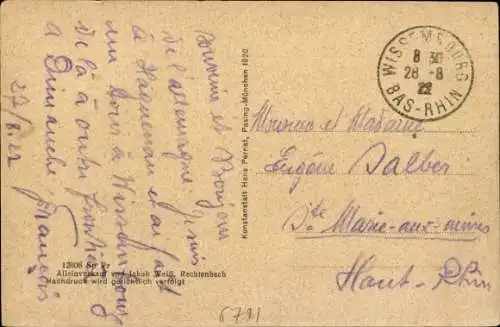 Souvenir et Bonjour
de l'allemagne je suis
à Haguenau et ai fait
un tour à Wissembourg
de là à outre frontière
a Dimanche
François
27/8.22
12806 Sp Pr
Alleinverkauf von Jakob Weiß, Rechtenbach
Nachdruck wird gerichtlich verfolgt
Konstanstalt Hans Pernat, Pasing-München 1920
WISSEMBOURG
8 30
28 -8
22
BAS-RHIN
Monsieur et Madame
Eugène Dalber
Ste Marie-aux-mines
Haut-Rhin